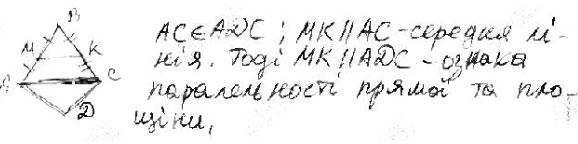 B
M
K
A
C
D
AC∈ADC ; MK||AC - середня лі-
нія. Тоді MK||ADC - ознака
паралельності прямої та пло-
щини,